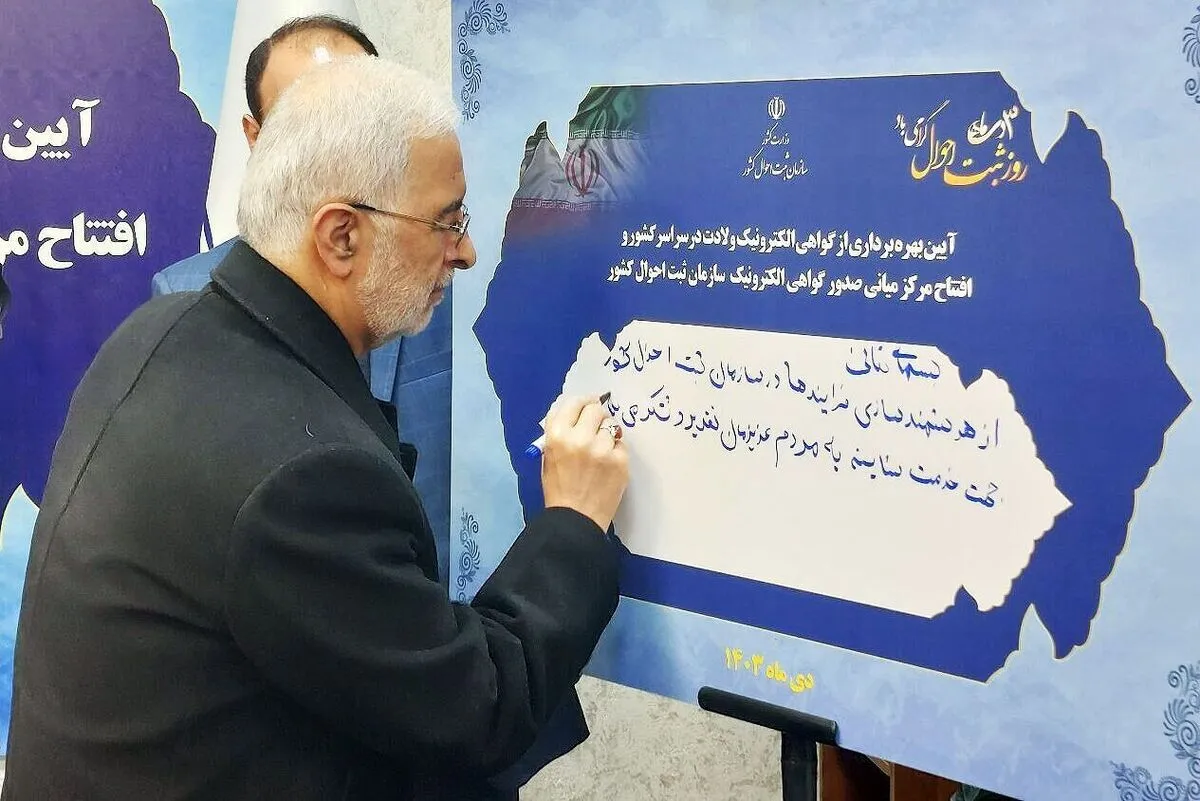 آیین
افتتاح مر
۳ دی ماه
روز ثبت احوال گرامی باد
وزارت کشور
سازمان ثبت احوال کشور
آیین بهره برداری از گواهی الکترونیک ولادت در سراسر کشور و
افتتاح مرکز میانی صدور گواهی الکترونیک سازمان ثبت احوال کشور
بسمه تعالی
از هوشمندسازی فرایندها در سازمان ثبت احوال کشور
جهت خدمت به مردم عزیزمان تقدیر و تشکر می
دی ماه ۱۴۰۳